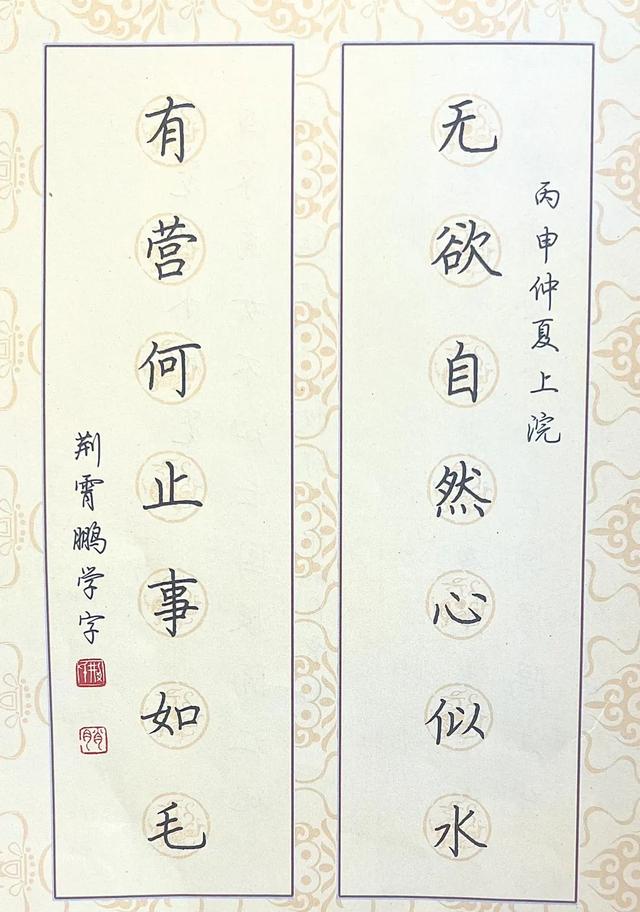 丙申仲夏上浣
无欲自然心似水
有营何止事如毛
荆霄鹏学字